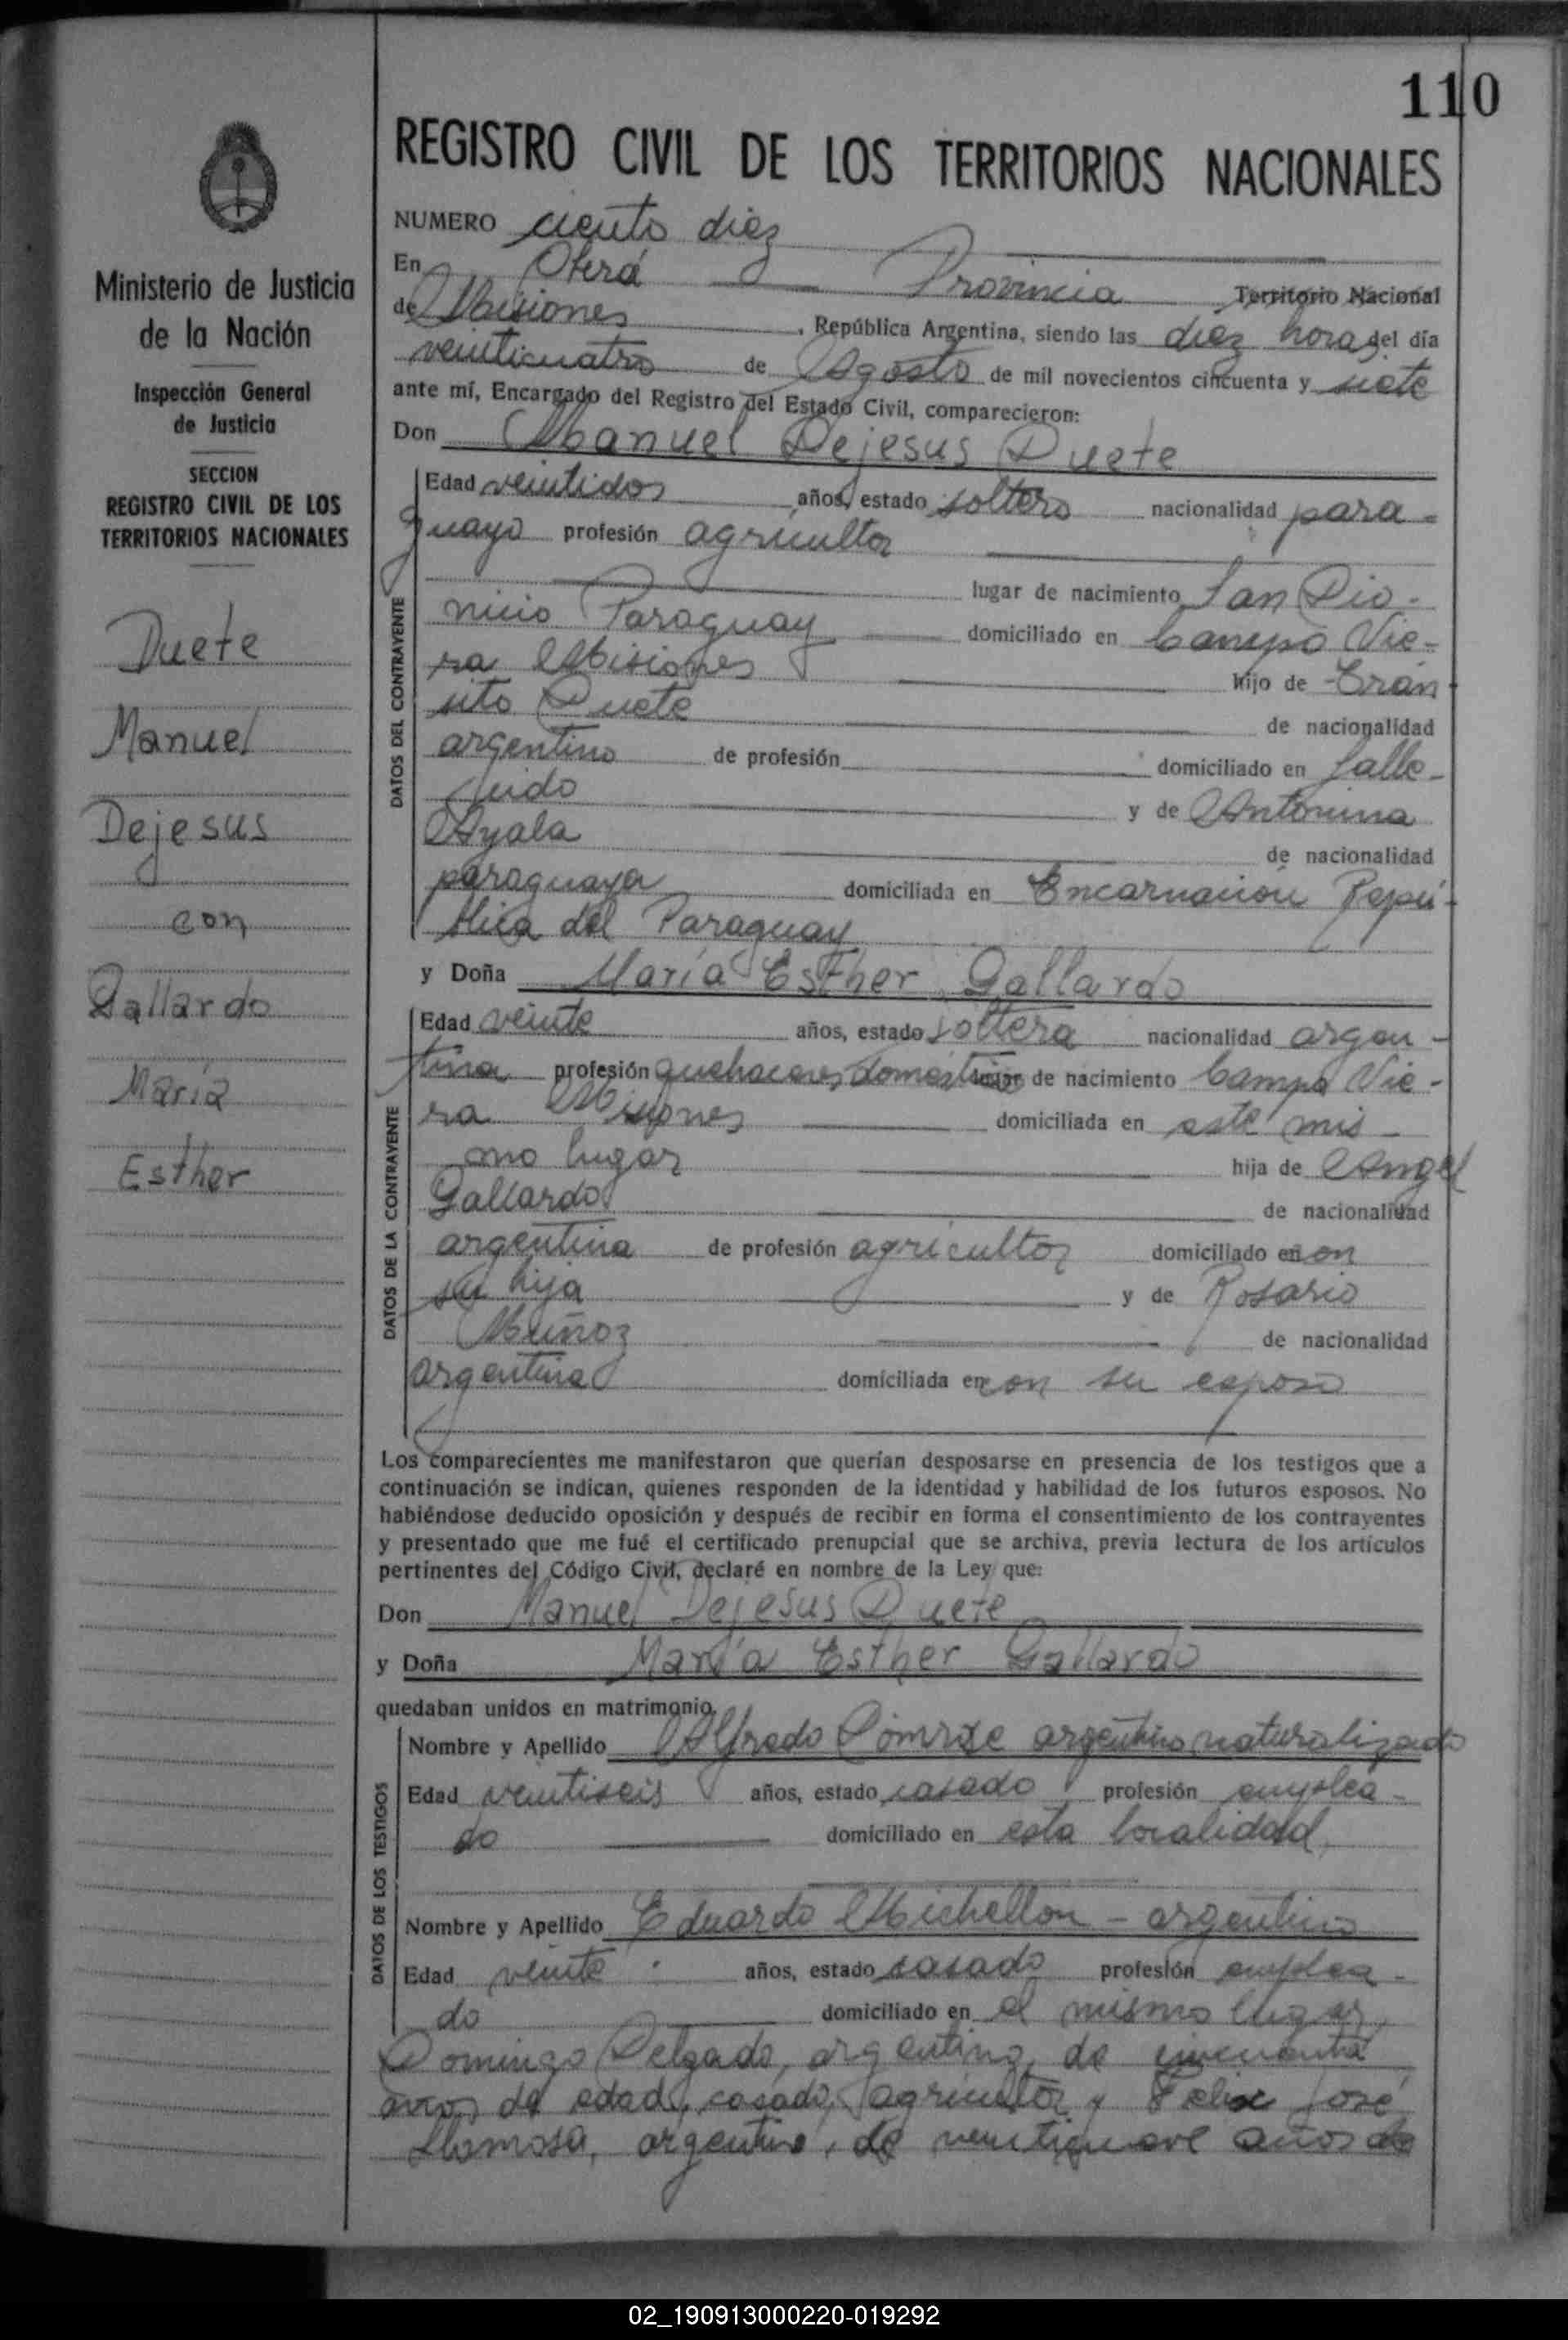 110
REGISTRO CIVIL DE LOS TERRITORIOS NACIONALES
Ministerio de Justicia
de la Nación
Inspección General
de Justicia
SECCION
REGISTRO CIVIL DE LOS
TERRITORIOS NACIONALES
Duete
Manuel
Dejesus
con
Gallardo
María
Esther
NUMERO ciento diez
En Oberá Provincia Territorio Nacional
de Misiones , República Argentina, siendo las diez horas del día
veinticuatro de Agosto de mil novecientos cincuenta y siete
ante mí, Encargado del Registro del Estado Civil, comparecieron:
Don Manuel Dejesus Duete
DATOS DEL CONTRAYENTE
Edad veintidos años, estado soltero nacionalidad para-
guayo profesión agricultor
lugar de nacimiento San Dio-
nicio Paraguay domiciliado en Campo Vie-
ra Misiones hijo de Trán
sito Duete de nacionalidad
argentino de profesión domiciliado en falle-
cido y de Antonina
Ayala de nacionalidad
paraguaya domiciliada en Encarnación Repú-
blica del Paraguay
y Doña María Esther Gallardo
DATOS DE LA CONTRAYENTE
Edad veinte años, estado soltera nacionalidad argen-
tina profesión quehaceres domésticos lugar de nacimiento Campo Vie-
ra Misiones domiciliada en este mis-
mo lugar hija de Angel
Gallardo de nacionalidad
argentina de profesión agricultor domiciliado en con
su hija y de Rosario
Muñoz de nacionalidad
argentina domiciliada en con su esposo
Los comparecientes me manifestaron que querían desposarse en presencia de los testigos que a
continuación se indican, quienes responden de la identidad y habilidad de los futuros esposos. No
habiéndose deducido oposición y después de recibir en forma el consentimiento de los contrayentes
y presentado que me fué el certificado prenupcial que se archiva, previa lectura de los artículos
pertinentes del Código Civil, declaré en nombre de la Ley que:
Don Manuel Dejesus Duete
y Doña María Esther Gallardo
quedaban unidos en matrimonio.
DATOS DE LOS TESTIGOS
Nombre y Apellido Alfredo argentino naturalizado
Edad veintiseis años, estado casado profesión emplea-
do domiciliado en esta localidad,
Nombre y Apellido Eduardo Michellon - argentino
Edad veinte años, estado casado profesión emplea-
do domiciliado en el mismo lugar,
Domingo Delgado, argentino, de cincuenta
años de edad, casado, agricultor y Felix José
Llamosa, argentino, de veintinueve años de
02_190913000220-019292